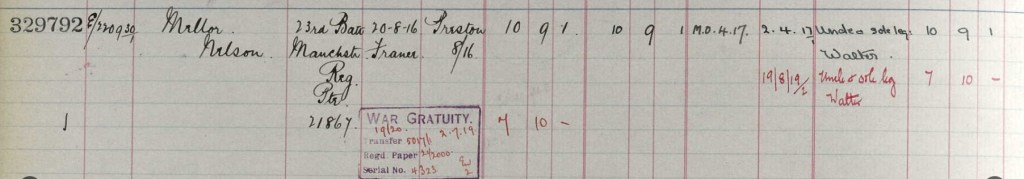 329792 E/220939/1 Mellor. 23rd Batt 20-8-16 Preston 10 9 1 10 9 1 M.O. 4.17. 2.4.17 Uncle & sole leg: 10 9 1
Nelson. Manchstr France 8/16. Walter.
Reg. 19/8/19 Uncle & sole leg 7 10 -
Pte. Walter
1 21867. WAR GRATUITY. 7 10 -
19/20. 2.7.19
Transfer
Regd. Paper
Serial No. 4/323